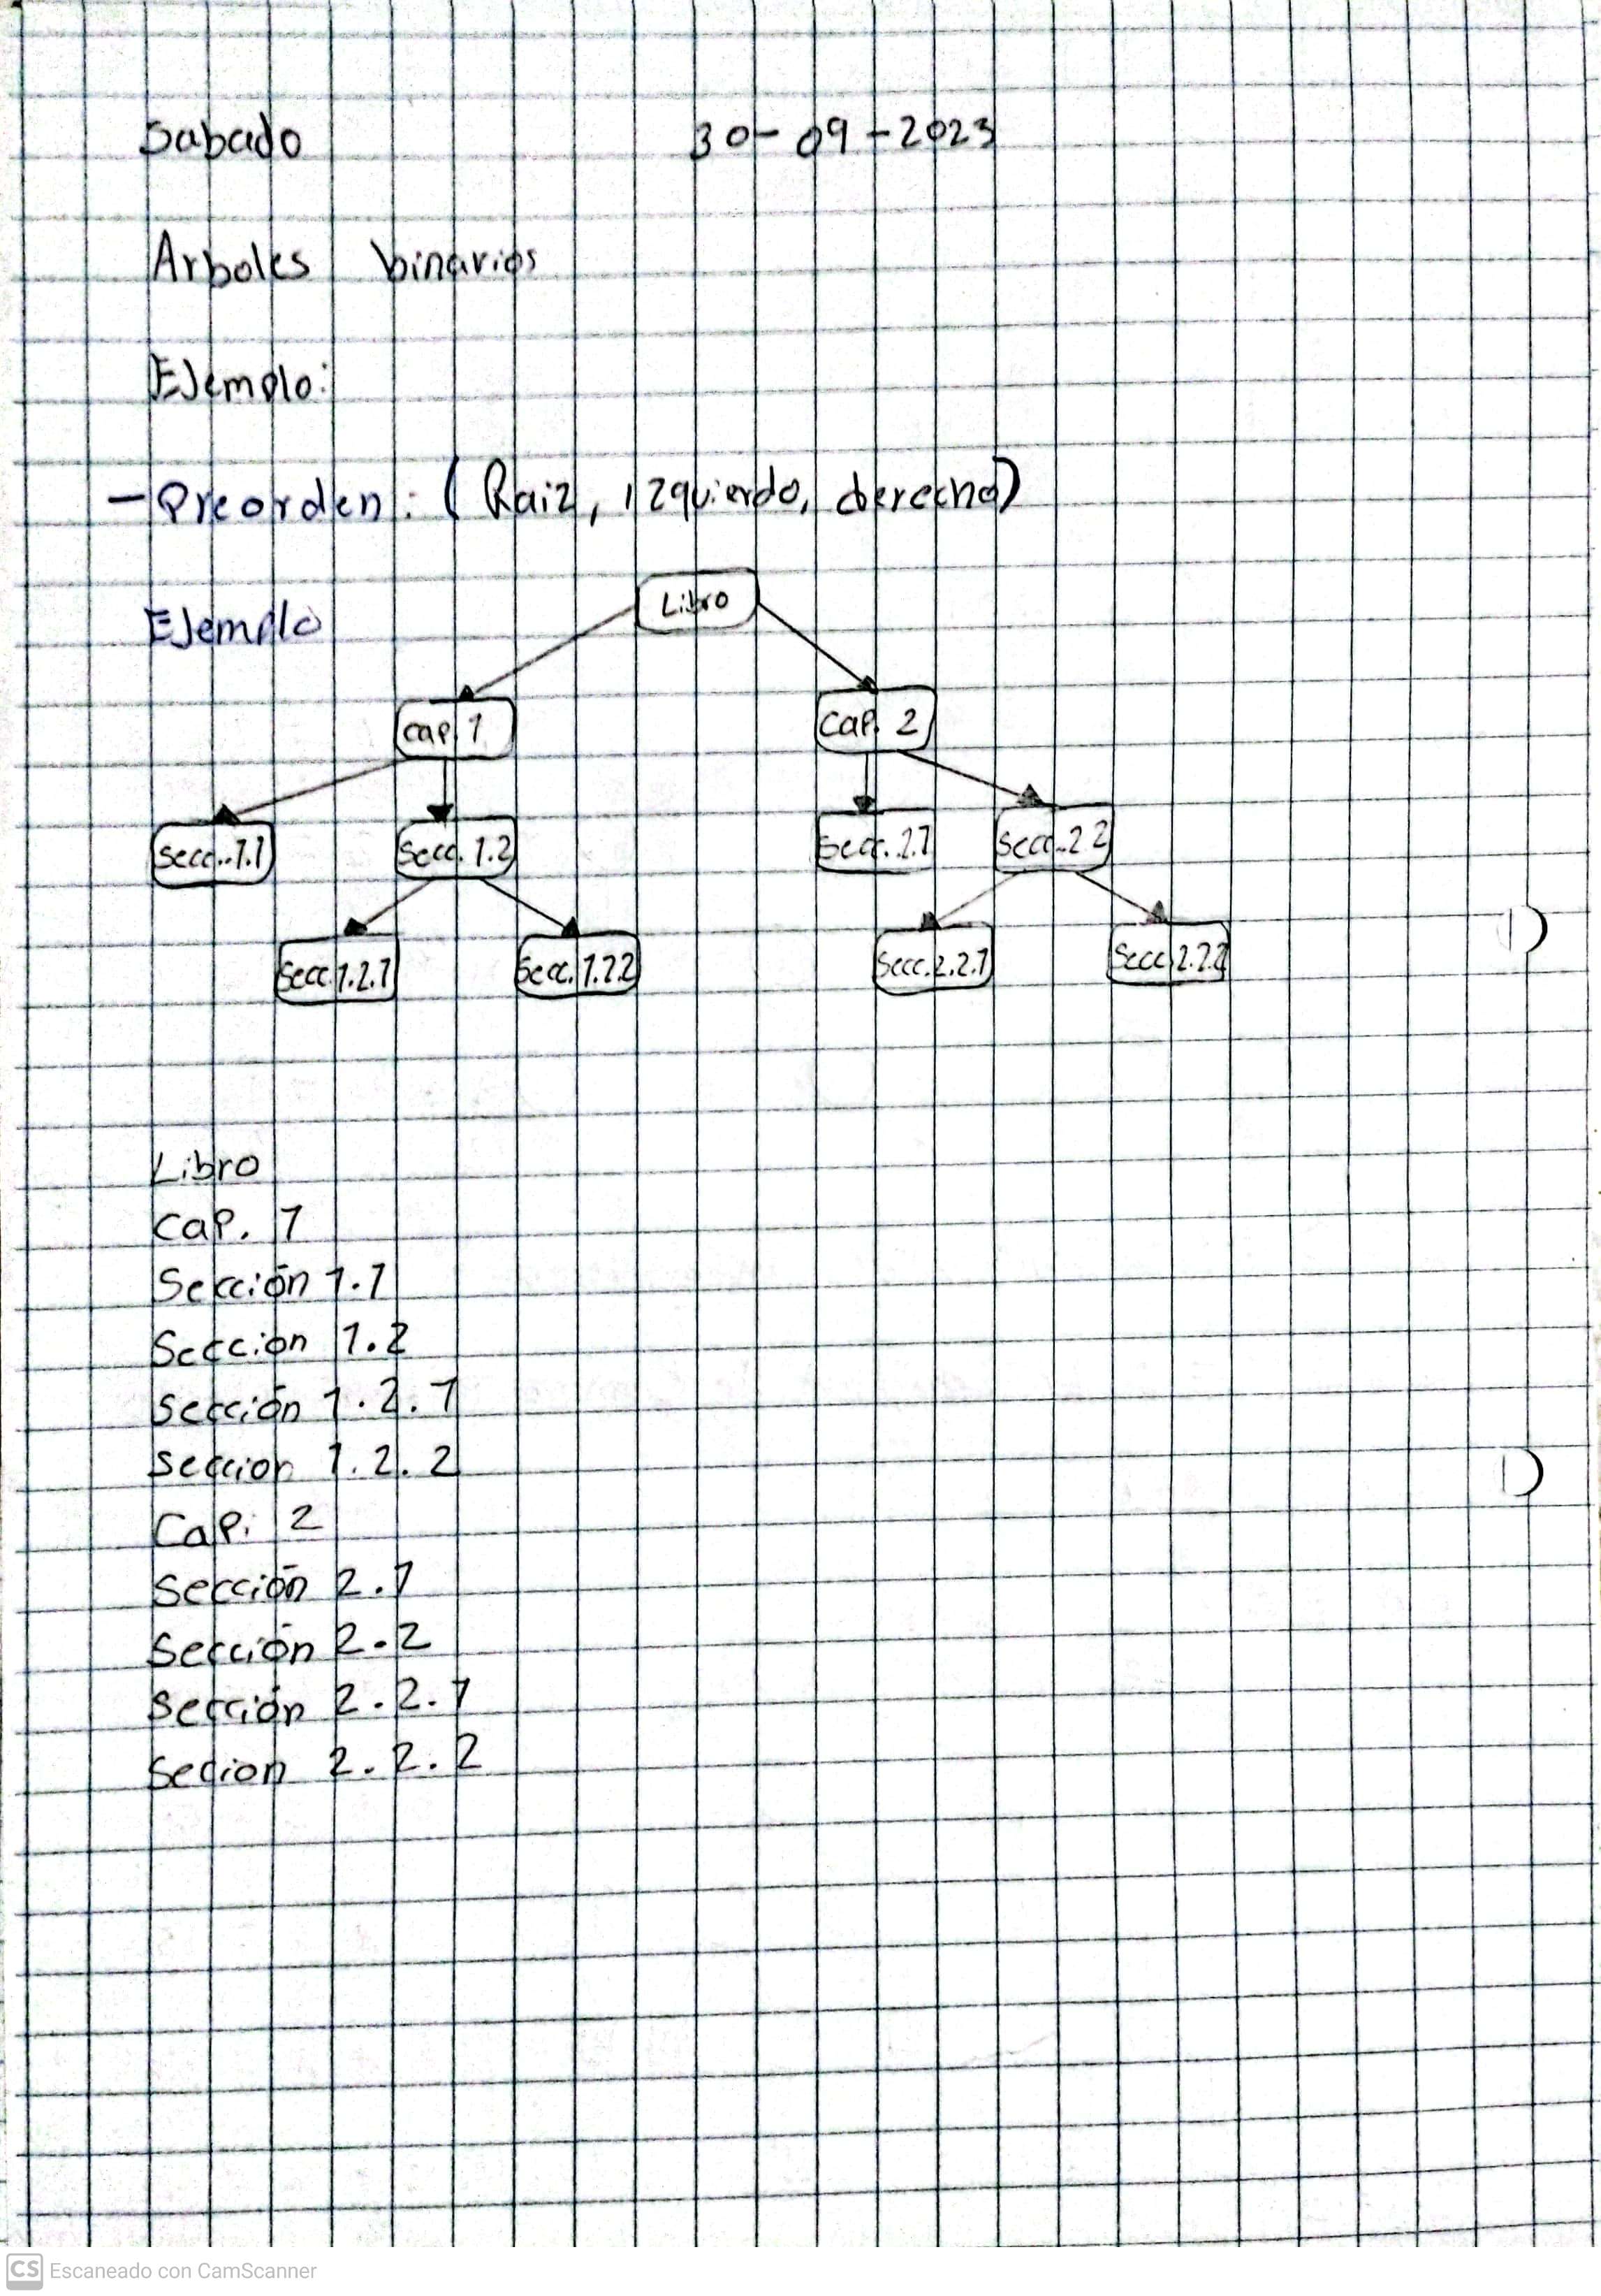 Sabado 30-09-2023
Arboles binarios
Ejemplo:
- Preorden: (Raiz, izquierdo, derecho)
Libro
Ejemplo
cap. 1 Cap. 2
Secc. 1.1 Secc. 1.2 Secc. 2.1 Secc. 2.2
Secc. 1.2.1 Secc. 1.2.2 Secc. 2.2.1 Secc. 2.2.2
Libro
Cap. 1
Sección 1.1
Sección 1.2
Sección 1.2.1
Seccion 1.2.2
Cap. 2
Sección 2.1
Sección 2.2
Sección 2.2.1
Secion 2.2.2
CS Escaneado con CamScanner